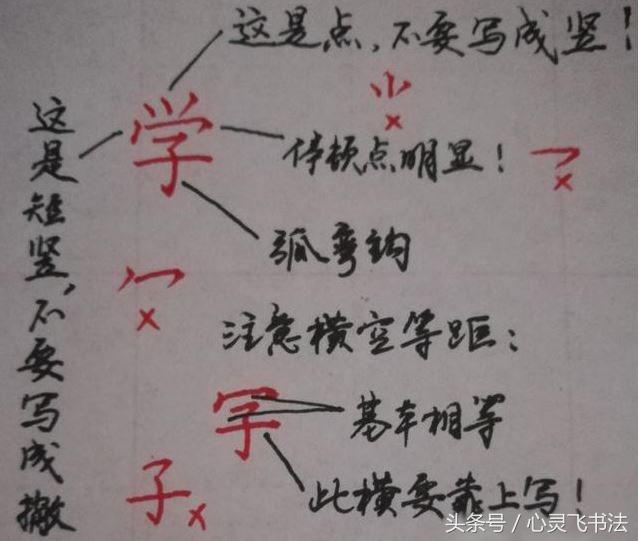 这是点,不要写成竖!
这是短竖,不要写成撇
学
x
停顿点明显!
x
弧弯钩
x
注意横空等距:
基本相等
子x
此横要靠上写!
头条号/心灵飞书法